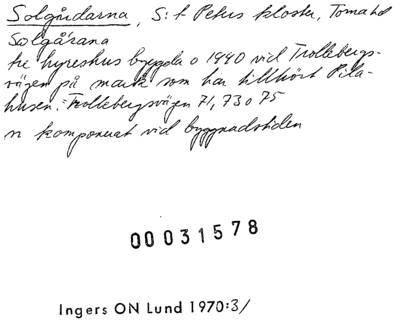 Solgårdarna, S:t Petus kloster, Toma hd
Solgårana
tre hyreshus byggda o 1940 vid Trollebergs-
vägen på mark som har tillhört Pila-
husen. Trollebergsvägen 71, 73 o 75
n komponerat vid byggnadstiden
00031578
Ingers ON Lund 1970:3/